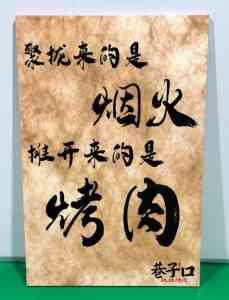 聚拢来的是
烟火
摊开来的是
烤肉
巷子口